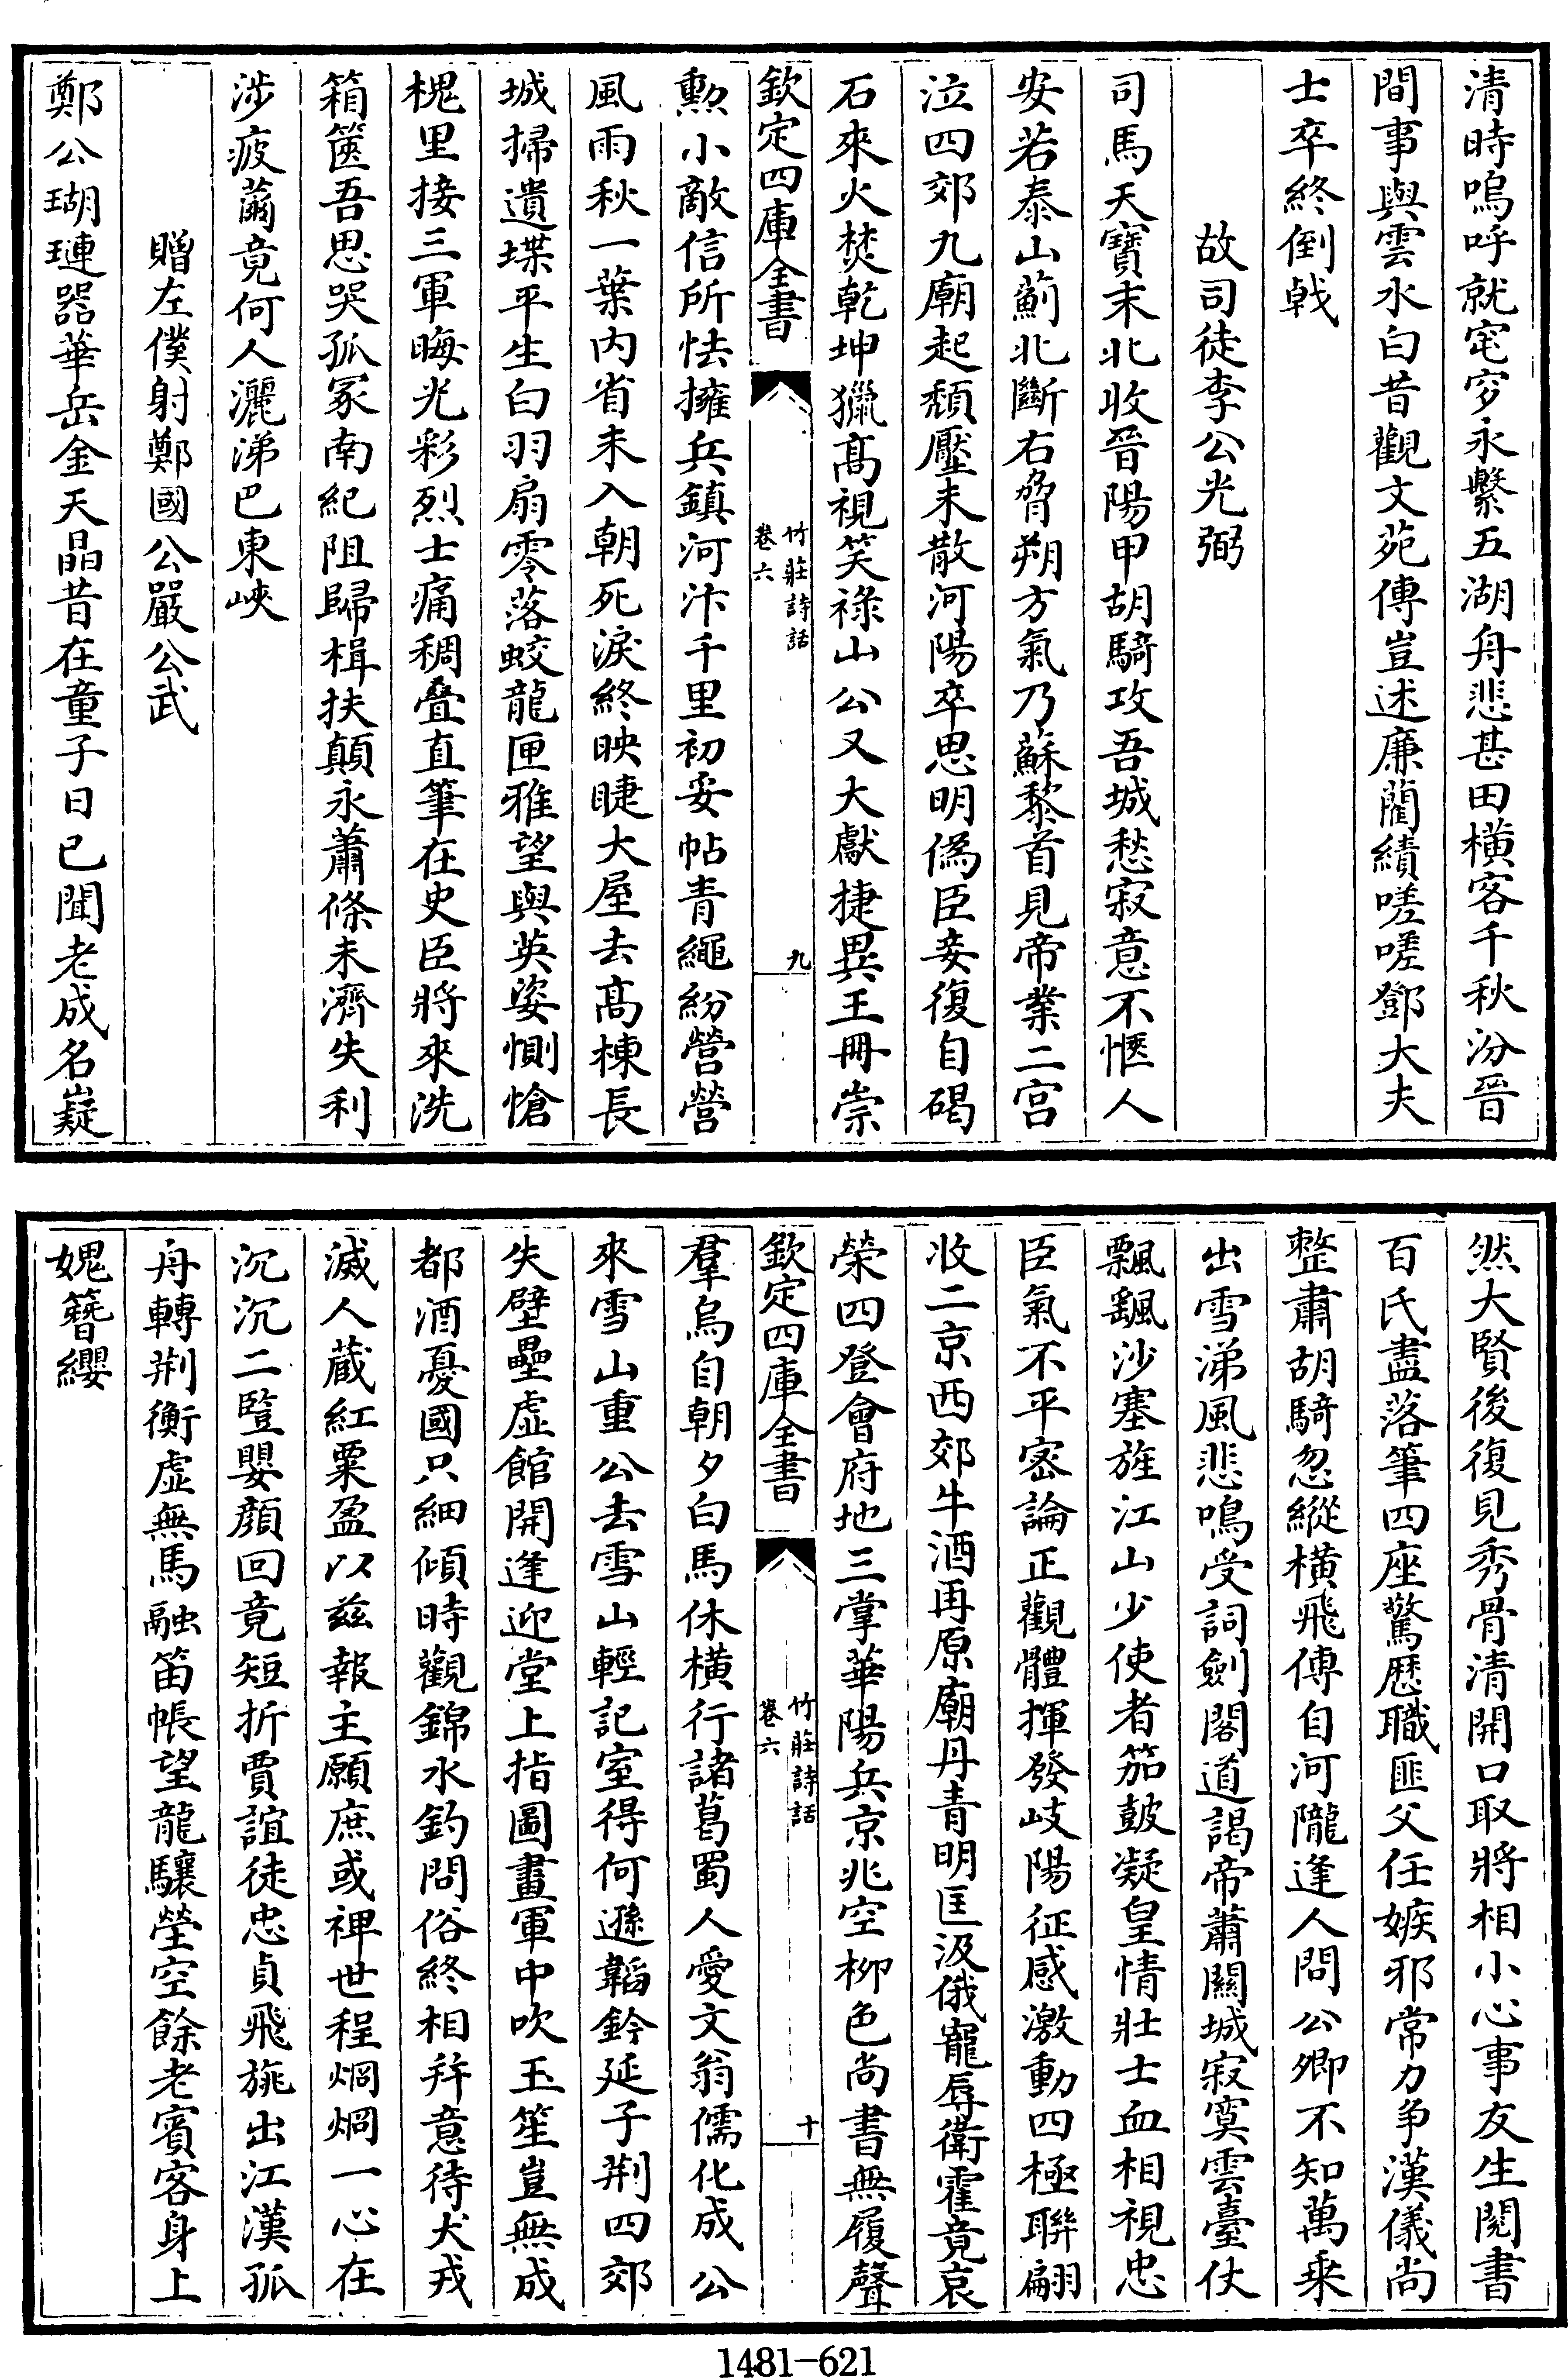 清時嗚呼就窀穸永繫五湖舟悲甚田橫客千秋汾晉
間事與雲水白昔觀文苑傳豈述廉藺績嗟嗟鄧大夫
士卒終倒戟
故司徒李公光弼
司馬天寶末北收晉陽甲胡騎攻吾城愁寂意不愜人
安若泰山薊北斷右脅朔方氣乃蘇黎首見帝業二宫
泣四郊九廟起頹壓未散河陽卒思明偽臣妾復自碣
石來火焚乾坤獵髙視笑祿山公又大獻捷異王冊崇
欽定四庫全書
竹莊詩話
卷六
九
勲小敵信所怯擁兵鎮河汴千里初妥帖青繩紛營營
風雨秋一葉内省未入朝死淚終映睫大屋去髙棟長
城掃遺堞平生白羽扇零落蛟龍匣雅望與英姿惻愴
槐里接三軍晦光彩烈士痛稠疊直筆在史臣將來洗
箱篋吾思哭孤冢南紀阻歸楫扶顛永蕭條未濟失利
涉疲薾竟何人灑涕巴東峽
贈左僕射鄭國公嚴公武
鄭公瑚璉器華岳金天晶昔在童子日已聞老成名嶷
然大賢後復見秀骨清開口取將相小心事友生閱書
百氏盡落筆四座驚歴職匪父任嫉邪常力争漢儀尚
整肅胡騎忽縱橫飛傳自河隴逢人問公卿不知萬乗
出雪涕風悲鳴受詞劍閣道謁帝蕭關城寂寞雲臺仗
飄颻沙塞旌江山少使者笳鼓凝皇情壯士血相視忠
臣氣不平宻論正觀體揮發岐陽征感激動四極聯翩
收二京西郊牛酒再原廟丹青明匡汲俄寵辱衛霍竟哀
榮四登會府地三掌華陽兵京兆空柳色尚書無履聲
欽定四庫全書
竹莊詩話
卷六
十
羣烏自朝夕白馬休橫行諸葛蜀人愛文翁儒化成公
來雪山重公去雪山輕記室得何遜韜鈐延子荆四郊
失壁壘虚館開逢迎堂上指圖畫軍中吹玉笙豈無成
都酒憂國只細傾時觀錦水釣問俗終相幷意待犬戎
滅人蔵紅粟盈以兹報主願庶或裨世程烱烱一心在
沉沉二豎嬰顔回竟短折賈誼徒忠貞飛旐出江漢孤
舟轉荆衡虚無馬融笛帳望龍驤塋空餘老賓客身上
媿簪纓
1481-621